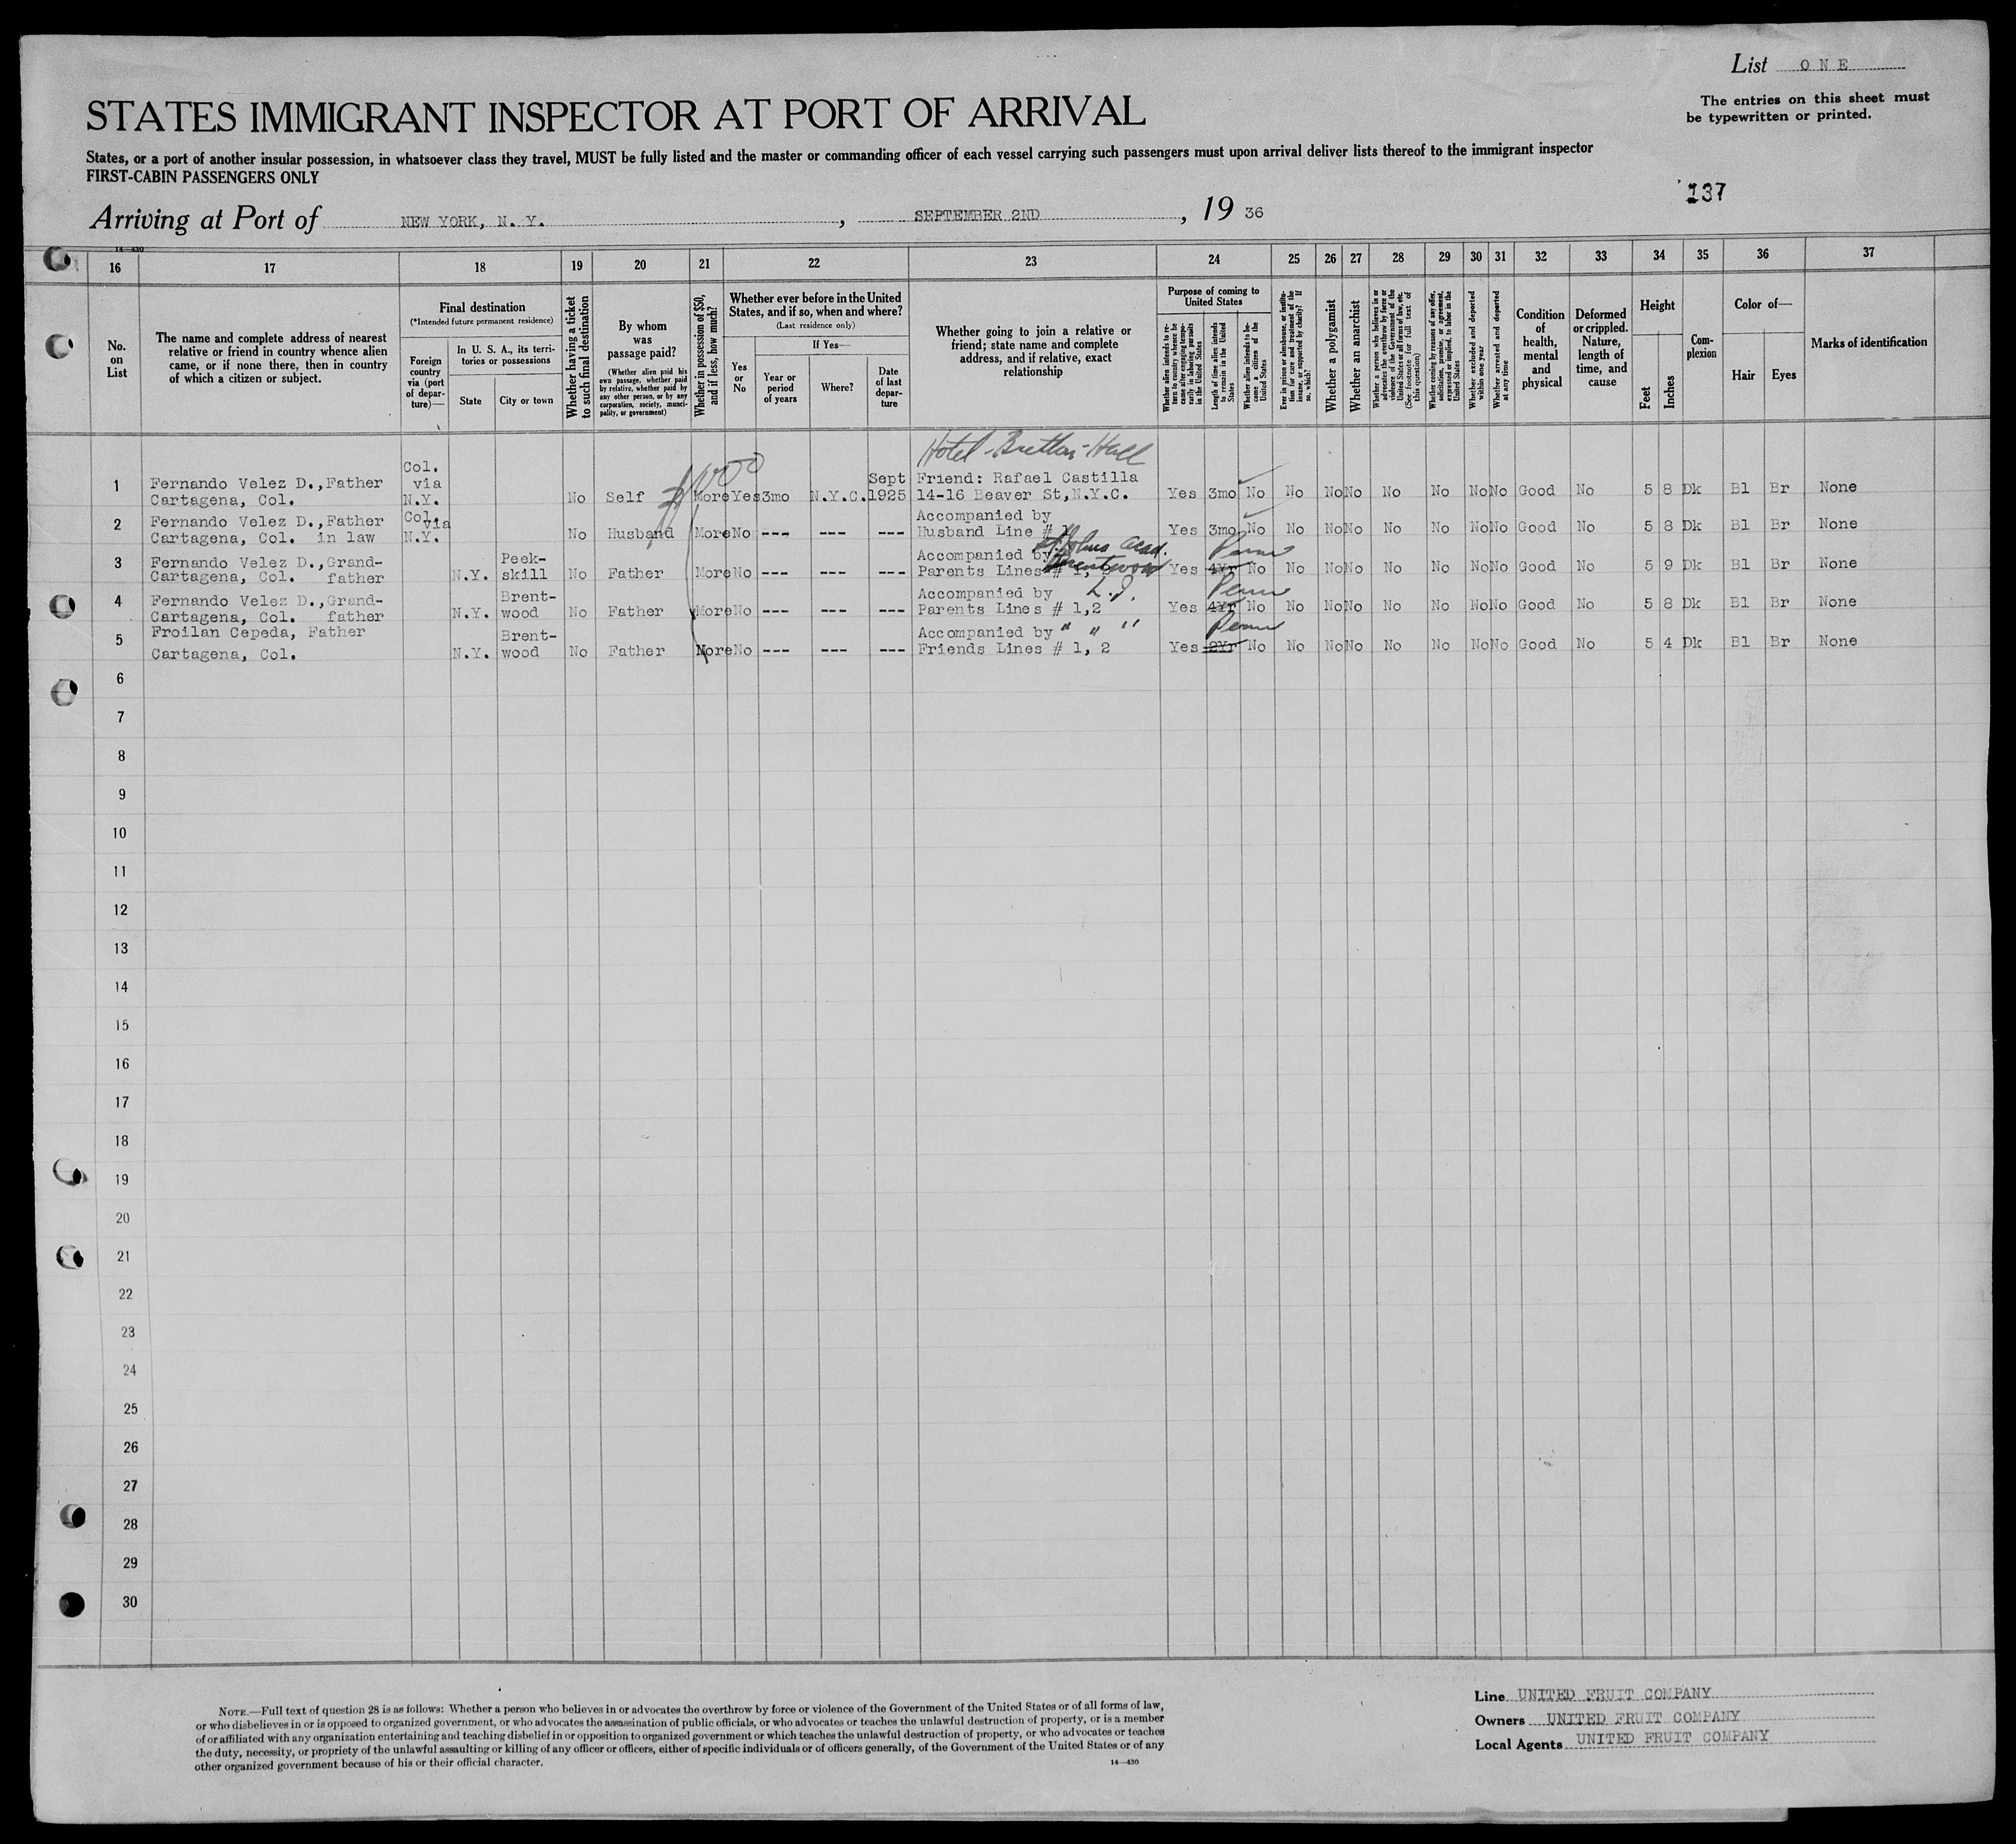 List ONE
STATES IMMIGRANT INSPECTOR AT PORT OF ARRIVAL
The entries on this sheet must
be typewritten or printed.
States, or a port of another insular possession, in whatsoever class they travel, MUST be fully listed and the master or commanding officer of each vessel carrying such passengers must upon arrival deliver lists thereof to the immigrant inspector
FIRST-CABIN PASSENGERS ONLY
137
Arriving at Port of NEW YORK, N. Y. , SEPTEMBER 2ND , 19 36
14—430
16 17 18 19 20 21 22 23 24 25 26 27 28 29 30 31 32 33 34 35 36 37
No.
on
List
The name and complete address of nearest
relative or friend in country whence alien
came, or if none there, then in country
of which a citizen or subject.
Final destination
(*Intended future permanent residence)
Foreign
country
via (port
of depar-
ture)—
In U. S. A., its terri-
tories or possessions
State
City or town
Whether having a ticket
to such final destination
By whom
was
passage paid?
(Whether alien paid his
own passage, whether paid
by relative, whether paid by
any other person, or by any
corporation, society, munici-
pality, or government)
Whether in possession of $50,
and if less, how much?
Whether ever before in the United
States, and if so, when and where?
(Last residence only)
Yes
or
No
If Yes—
Year or
period
of years
Where?
Date
of last
depar-
ture
Whether going to join a relative or
friend; state name and complete
address, and if relative, exact
relationship
Purpose of coming to
United States
Whether alien intends to re-
turn to country whence he
came after engaging tempo-
rarily in laboring pursuits
in the United States
Length of time alien intends
to remain in the United
States
Whether alien intends to be-
come a citizen of the
United States
Ever in prison or almshouse, or institu-
tion for care and treatment of the
insane, or supported by charity? If
so, which?
Whether a polygamist
Whether an anarchist
Whether a person who believes in or
advocates the overthrow by force or
violence of the Government of the
United States or all forms of law, etc.
(See footnote for full text of
this question)
Whether coming by reasons of any offer,
solicitation, promise, or agreement,
expressed or implied, to labor in the
United States
Whether excluded and deported
within one year
Whether arrested and deported
at any time
Condition
of
health,
mental
and
physical
Deformed
or crippled.
Nature,
length of
time, and
cause
Height
Feet
Inches
Com-
plexion
Color of—
Hair
Eyes
Marks of identification
Hotel Bretton Hall
1 Fernando Velez D.,Father
Cartagena, Col.
Col.
via
N.Y.
No Self More Yes 3mo N.Y.C. Sept
1925
Friend: Rafael Castilla
14-16 Beaver St,N.Y.C.
Yes 3mo No No No No No No No No Good No 5 8 Dk Bl Br None
2 Fernando Velez D.,Father
Cartagena, Col. in law
Col.
via
N.Y.
No Husband More No --- --- ---
Accompanied by
Husband Line #
Yes 3mo No No No No No No No No Good No 5 8 Dk Bl Br None
3 Fernando Velez D.,Grand-
Cartagena, Col. father
N.Y. Peek-
skill
No Father More No --- --- ---
Accompanied by
Parents Lines # 1,
Acad.
Brentwood
L.I.
Yes 4Yr No No No No No No No No Good No 5 9 Dk Bl Br None
4 Fernando Velez D.,Grand-
Cartagena, Col. father
N.Y. Brent-
wood
No Father More No --- --- ---
Accompanied by
Parents Lines # 1,2
Yes 4Yr No No No No No No No No Good No 5 8 Dk Bl Br None
5 Froilan Cepeda, Father
Cartagena, Col.
N.Y. Brent-
wood
No Father More No --- --- ---
Accompanied by " " "
Friends Lines # 1, 2
Yes 2Yr No No No No No No No No Good No 5 4 Dk Bl Br None
6
7
8
9
10
11
12
13
14
15
16
17
18
19
20
21
22
23
24
25
26
27
28
29
30
NOTE.—Full text of question 28 is as follows: Whether a person who believes in or advocates the overthrow by force or violence of the Government of the United States or of all forms of law,
or who disbelieves in or is opposed to organized government, or who advocates the assassination of public officials, or who advocates or teaches the unlawful destruction of property, or is a member
of or affiliated with any organization entertaining and teaching disbelief in or opposition to organized government or which teaches the unlawful destruction of property, or who advocates or teaches
the duty, necessity, or propriety of the unlawful assaulting or killing of any officer or officers, either of specific individuals or of officers generally, of the Government of the United States or of any
other organized government because of his or their official character.
14—430
Line UNITED FRUIT COMPANY
Owners UNITED FRUIT COMPANY
Local Agents UNITED FRUIT COMPANY